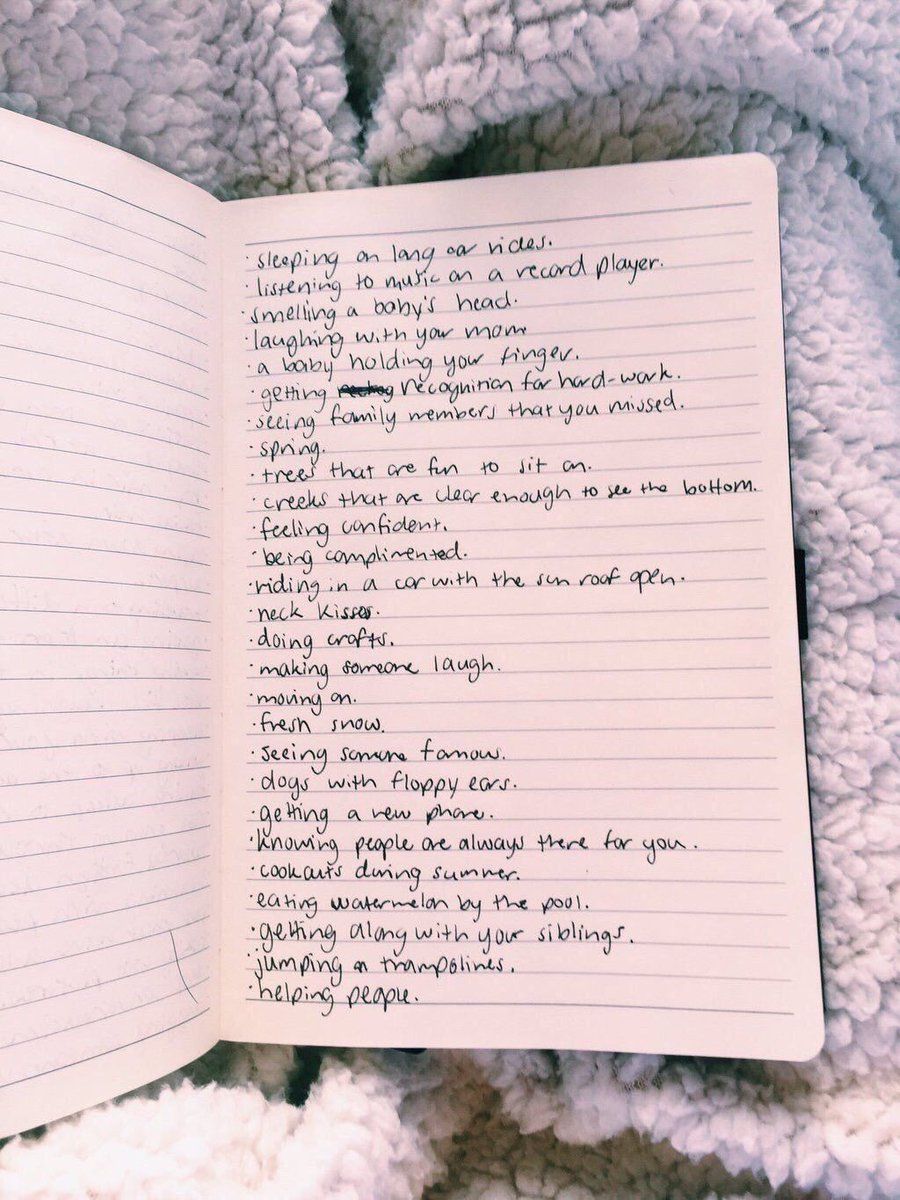 · sleeping on long car rides.
· listening to music on a record player.
· smelling a baby's head.
· laughing with your mom
· a baby holding your finger.
· getting recognition for hard-work.
· seeing family members that you missed.
· spring.
· trees that are fun to sit on.
· creeks that are clear enough to see the bottom.
· feeling confident.
· being complimented.
· riding in a car with the sun roof open.
· neck kisses.
· doing crafts.
· making someone laugh.
· moving on.
· fresh snow.
· seeing someone famous.
· dogs with floppy ears.
· getting a new phone.
· knowing people are always there for you.
· cookouts during summer.
· eating watermelon by the pool.
· getting along with your siblings.
· jumping on trampolines.
· helping people.